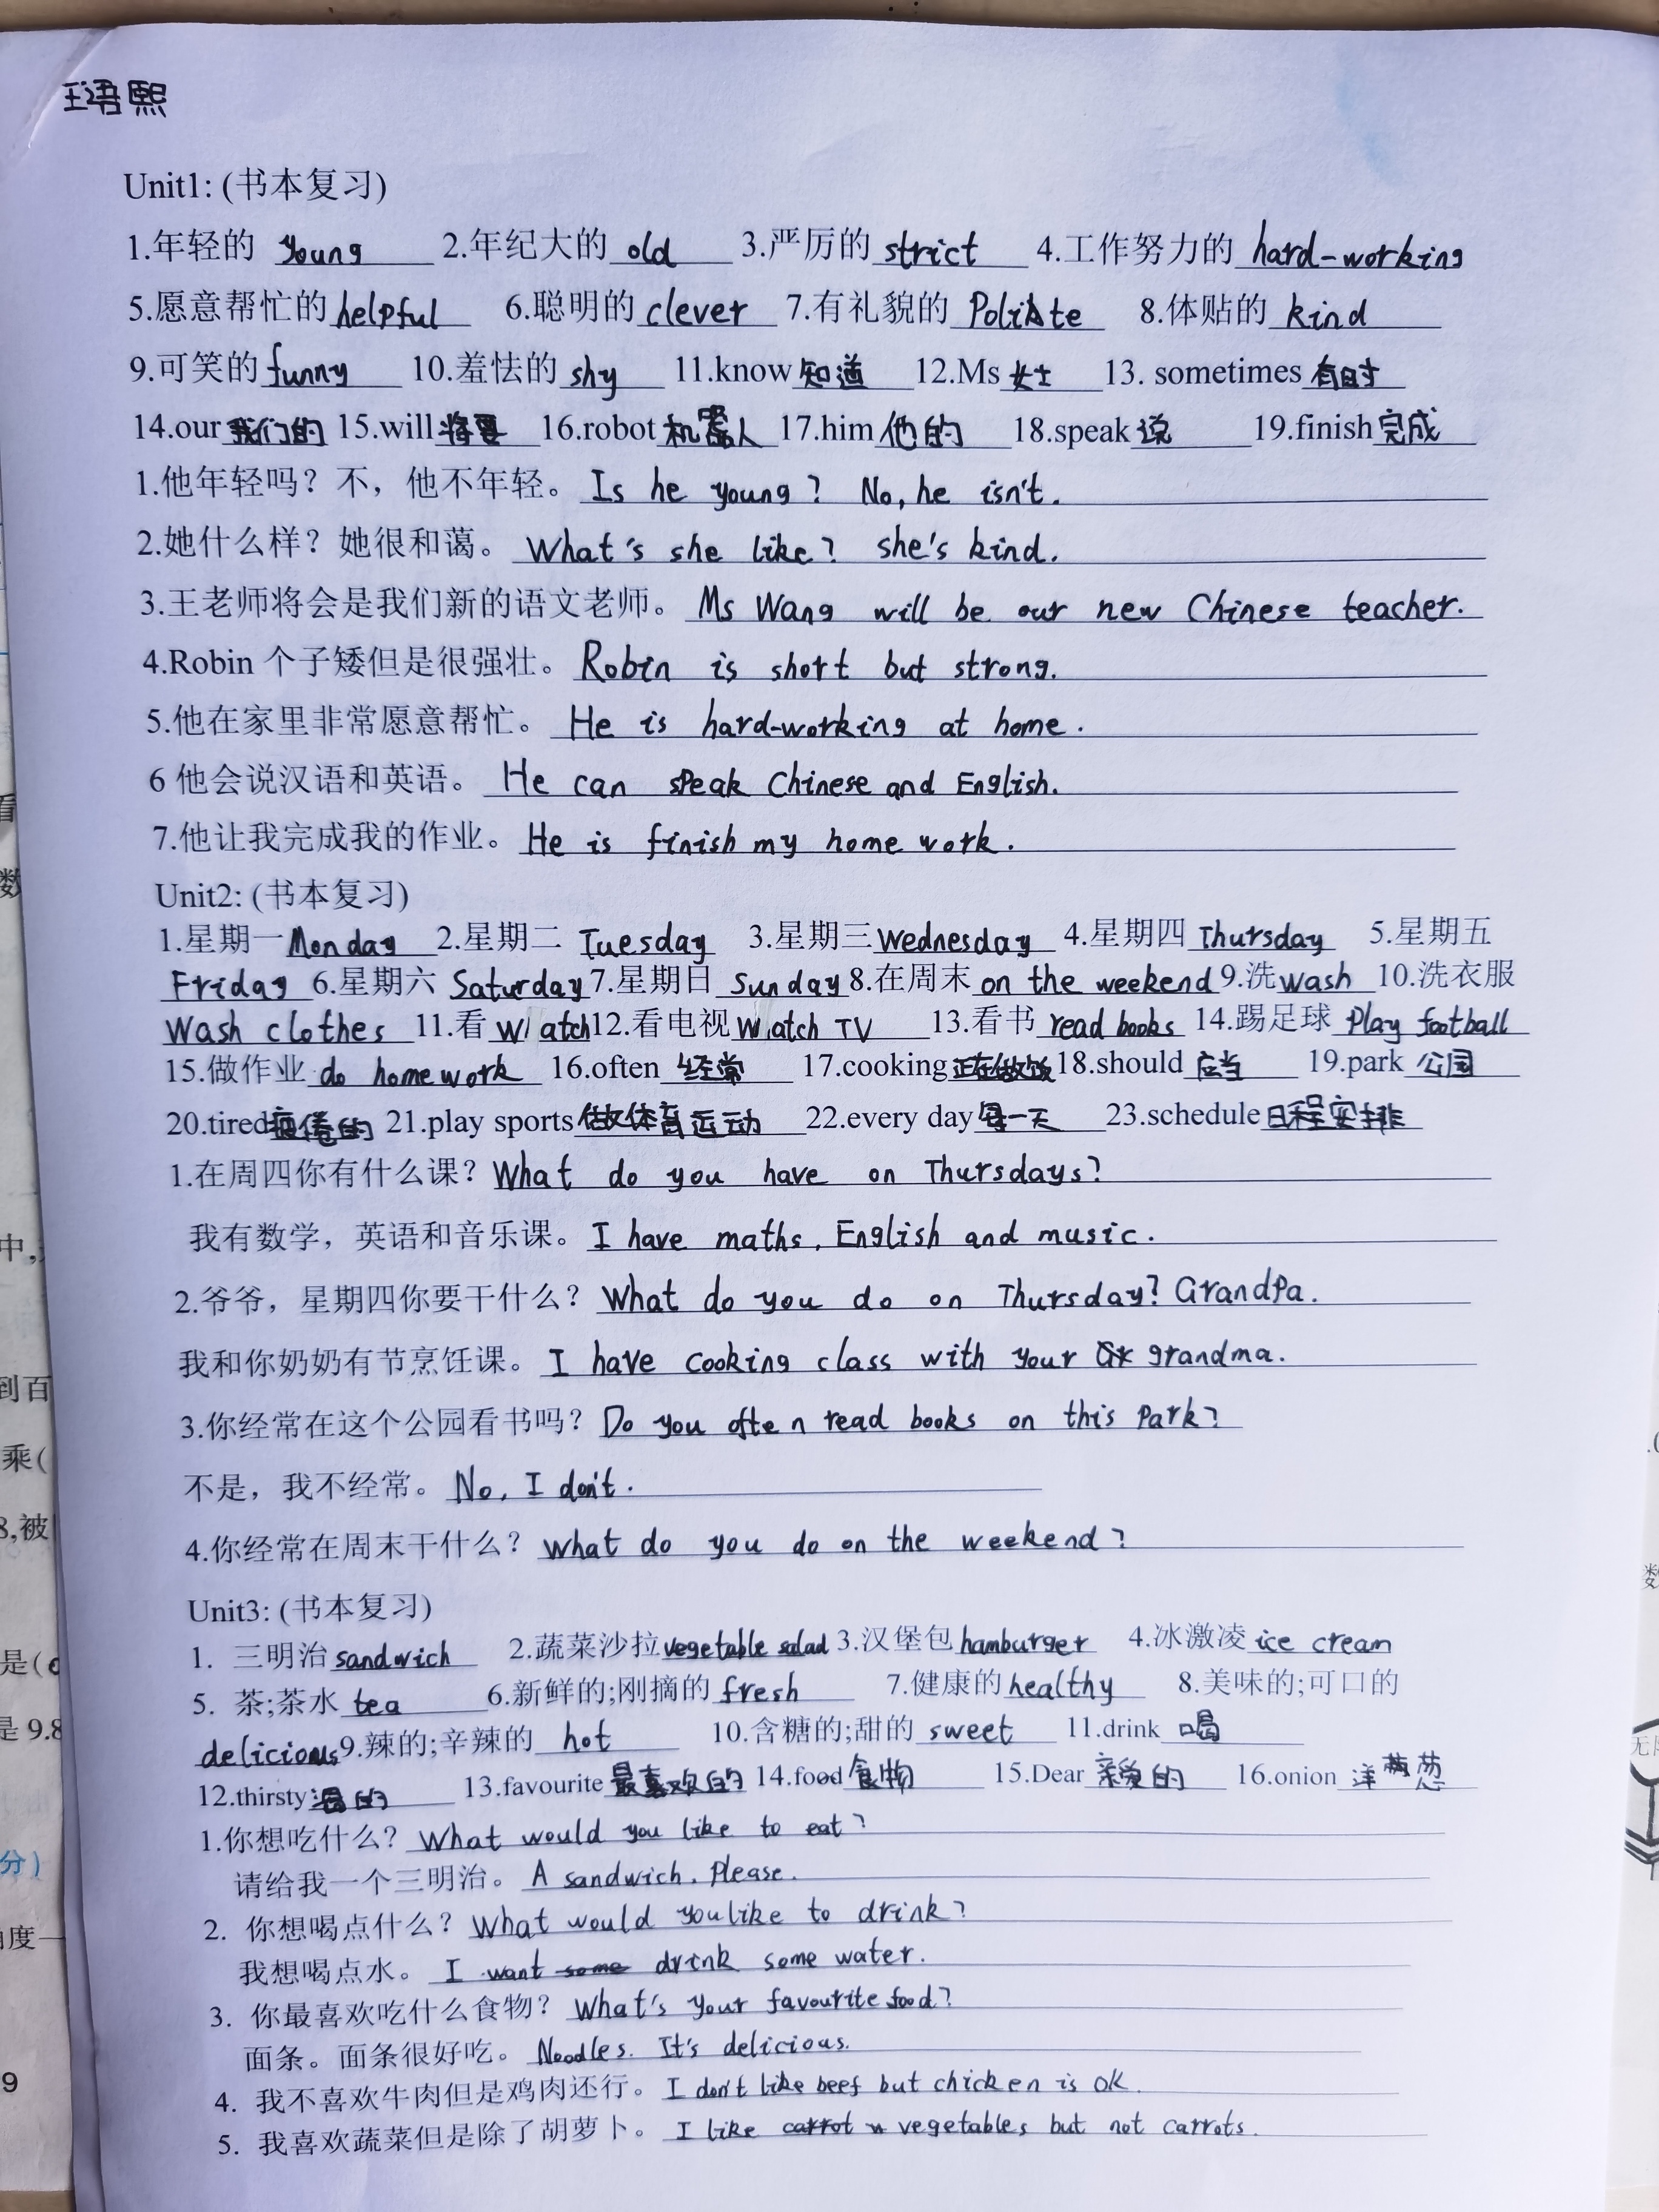 王语熙
Unit1: (书本复习)
1.年轻的 young 2.年纪大的 old 3.严厉的 strict 4.工作努力的 hard-working
5.愿意帮忙的 helpful 6.聪明的 clever 7.有礼貌的 Polite 8.体贴的 kind
9.可笑的 funny 10.羞怯的 shy 11.know 知道 12.Ms 女士 13. sometimes 有时
14.our 我们的 15.will 将要 16.robot 机器人 17.him 他的 18.speak 说 19.finish 完成
1.他年轻吗？不，他不年轻。 Is he young? No, he isn't.
2.她什么样？她很和蔼。 What's she like? she's kind.
3.王老师将会是我们新的语文老师。 Ms Wang will be our new Chinese teacher.
4.Robin 个子矮但是很强壮。 Robin is short but strong.
5.他在家里非常愿意帮忙。 He is hard-working at home.
6 他会说汉语和英语。 He can speak Chinese and English.
7.他让我完成我的作业。 He is finish my home work.
Unit2: (书本复习)
1.星期一 Monday 2.星期二 Tuesday 3.星期三 Wednesday 4.星期四 Thursday 5.星期五
Friday 6.星期六 Saturday 7.星期日 Sunday 8.在周末 on the weekend 9.洗 wash 10.洗衣服
Wash clothes 11.看 watch 12.看电视 Watch TV 13.看书 read books 14.踢足球 Play football
15.做作业 do homework 16.often 经常 17.cooking 正在做饭 18.should 应当 19.park 公园
20.tired 疲倦的 21.play sports 做体育运动 22.every day 每一天 23.schedule 日程安排
1.在周四你有什么课？ What do you have on Thursdays?
我有数学，英语和音乐课。 I have maths, English and music.
2.爷爷，星期四你要干什么？ What do you do on Thursday? Grandpa.
我和你奶奶有节烹饪课。 I have cooking class with your grandma.
3.你经常在这个公园看书吗？ Do you often read books on this Park?
不是，我不经常。 No, I don't.
4.你经常在周末干什么？ What do you do on the weekend?
Unit3: (书本复习)
1. 三明治 sandwich 2.蔬菜沙拉 vegetable salad 3.汉堡包 hamburger 4.冰激凌 ice cream
5. 茶;茶水 tea 6.新鲜的;刚摘的 fresh 7.健康的 healthy 8.美味的;可口的
delicious 9.辣的;辛辣的 hot 10.含糖的;甜的 sweet 11.drink 喝
12.thirsty 渴的 13.favourite 最喜欢的 14.food 食物 15.Dear 亲爱的 16.onion 洋葱
1.你想吃什么？ What would you like to eat?
请给我一个三明治。 A sandwich, Please.
2. 你想喝点什么？ What would you like to drink?
我想喝点水。 I want some drink some water.
3. 你最喜欢吃什么食物？ What's your favourite food?
面条。面条很好吃。 Noodles. It's delicious.
4. 我不喜欢牛肉但是鸡肉还行。 I don't like beef but chicken is OK.
5. 我喜欢蔬菜但是除了胡萝卜。 I like carrot vegetables but not carrots.